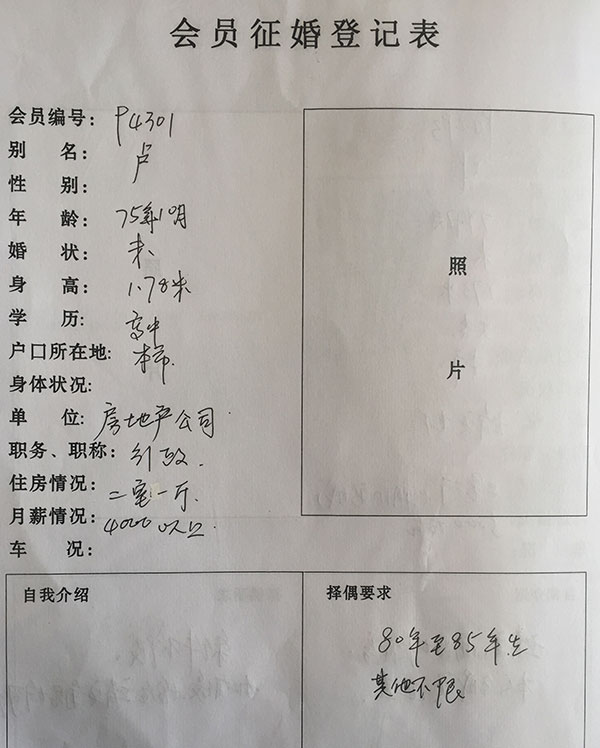 会员征婚登记表
会员编号：P4301
别 名：卢
性 别：
年 龄：75年10月
婚 状：未
身 高：1.78米
学 历：高中
户口所在地：本市
身体状况：
单 位：房地产公司
职务、职称：行政
住房情况：二室一厅
月薪情况：4000以上
车 况：
照
片
自我介绍
择偶要求
80年至85年生
其他不限